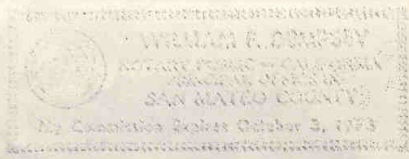 WILLIAM F. DEMPSEY
NOTARY PUBLIC - CALIFORNIA
PRINCIPAL OFFICE IN
SAN MATEO COUNTY
My Commission Expires October 3, 1973